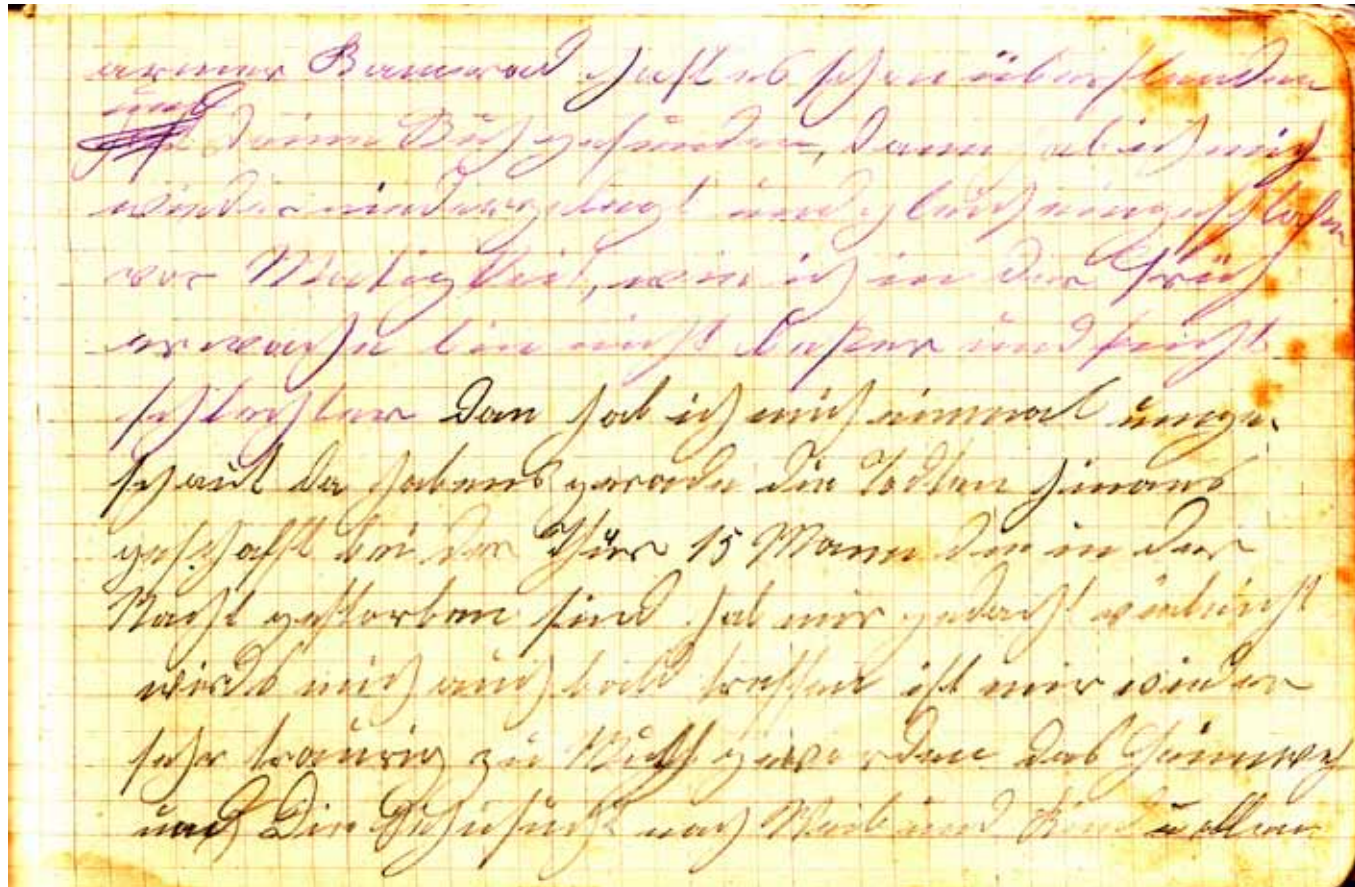 armer Kamerad hast es schon überstanden
und deine Ruh gefunden, dann hab ich mich
wieder niedergelegt und gleich eingeschlafen
vor Mattigkeit, wie ich in der Früh
erwache bin nicht besser und nicht
schlechter Dan hab ich mich einmal umge-
schaut da habens gerade die Todten hinaus
geschafft bei der Thür 15 Mann die in der
Nacht gestorben sind hab mir gedacht vieleicht
wirds mich auch bald treffen ist mir wieder
sehr traurig zu Muth geworden das Heimweh
und Die Sehnsucht nach Weib und Kind u allem